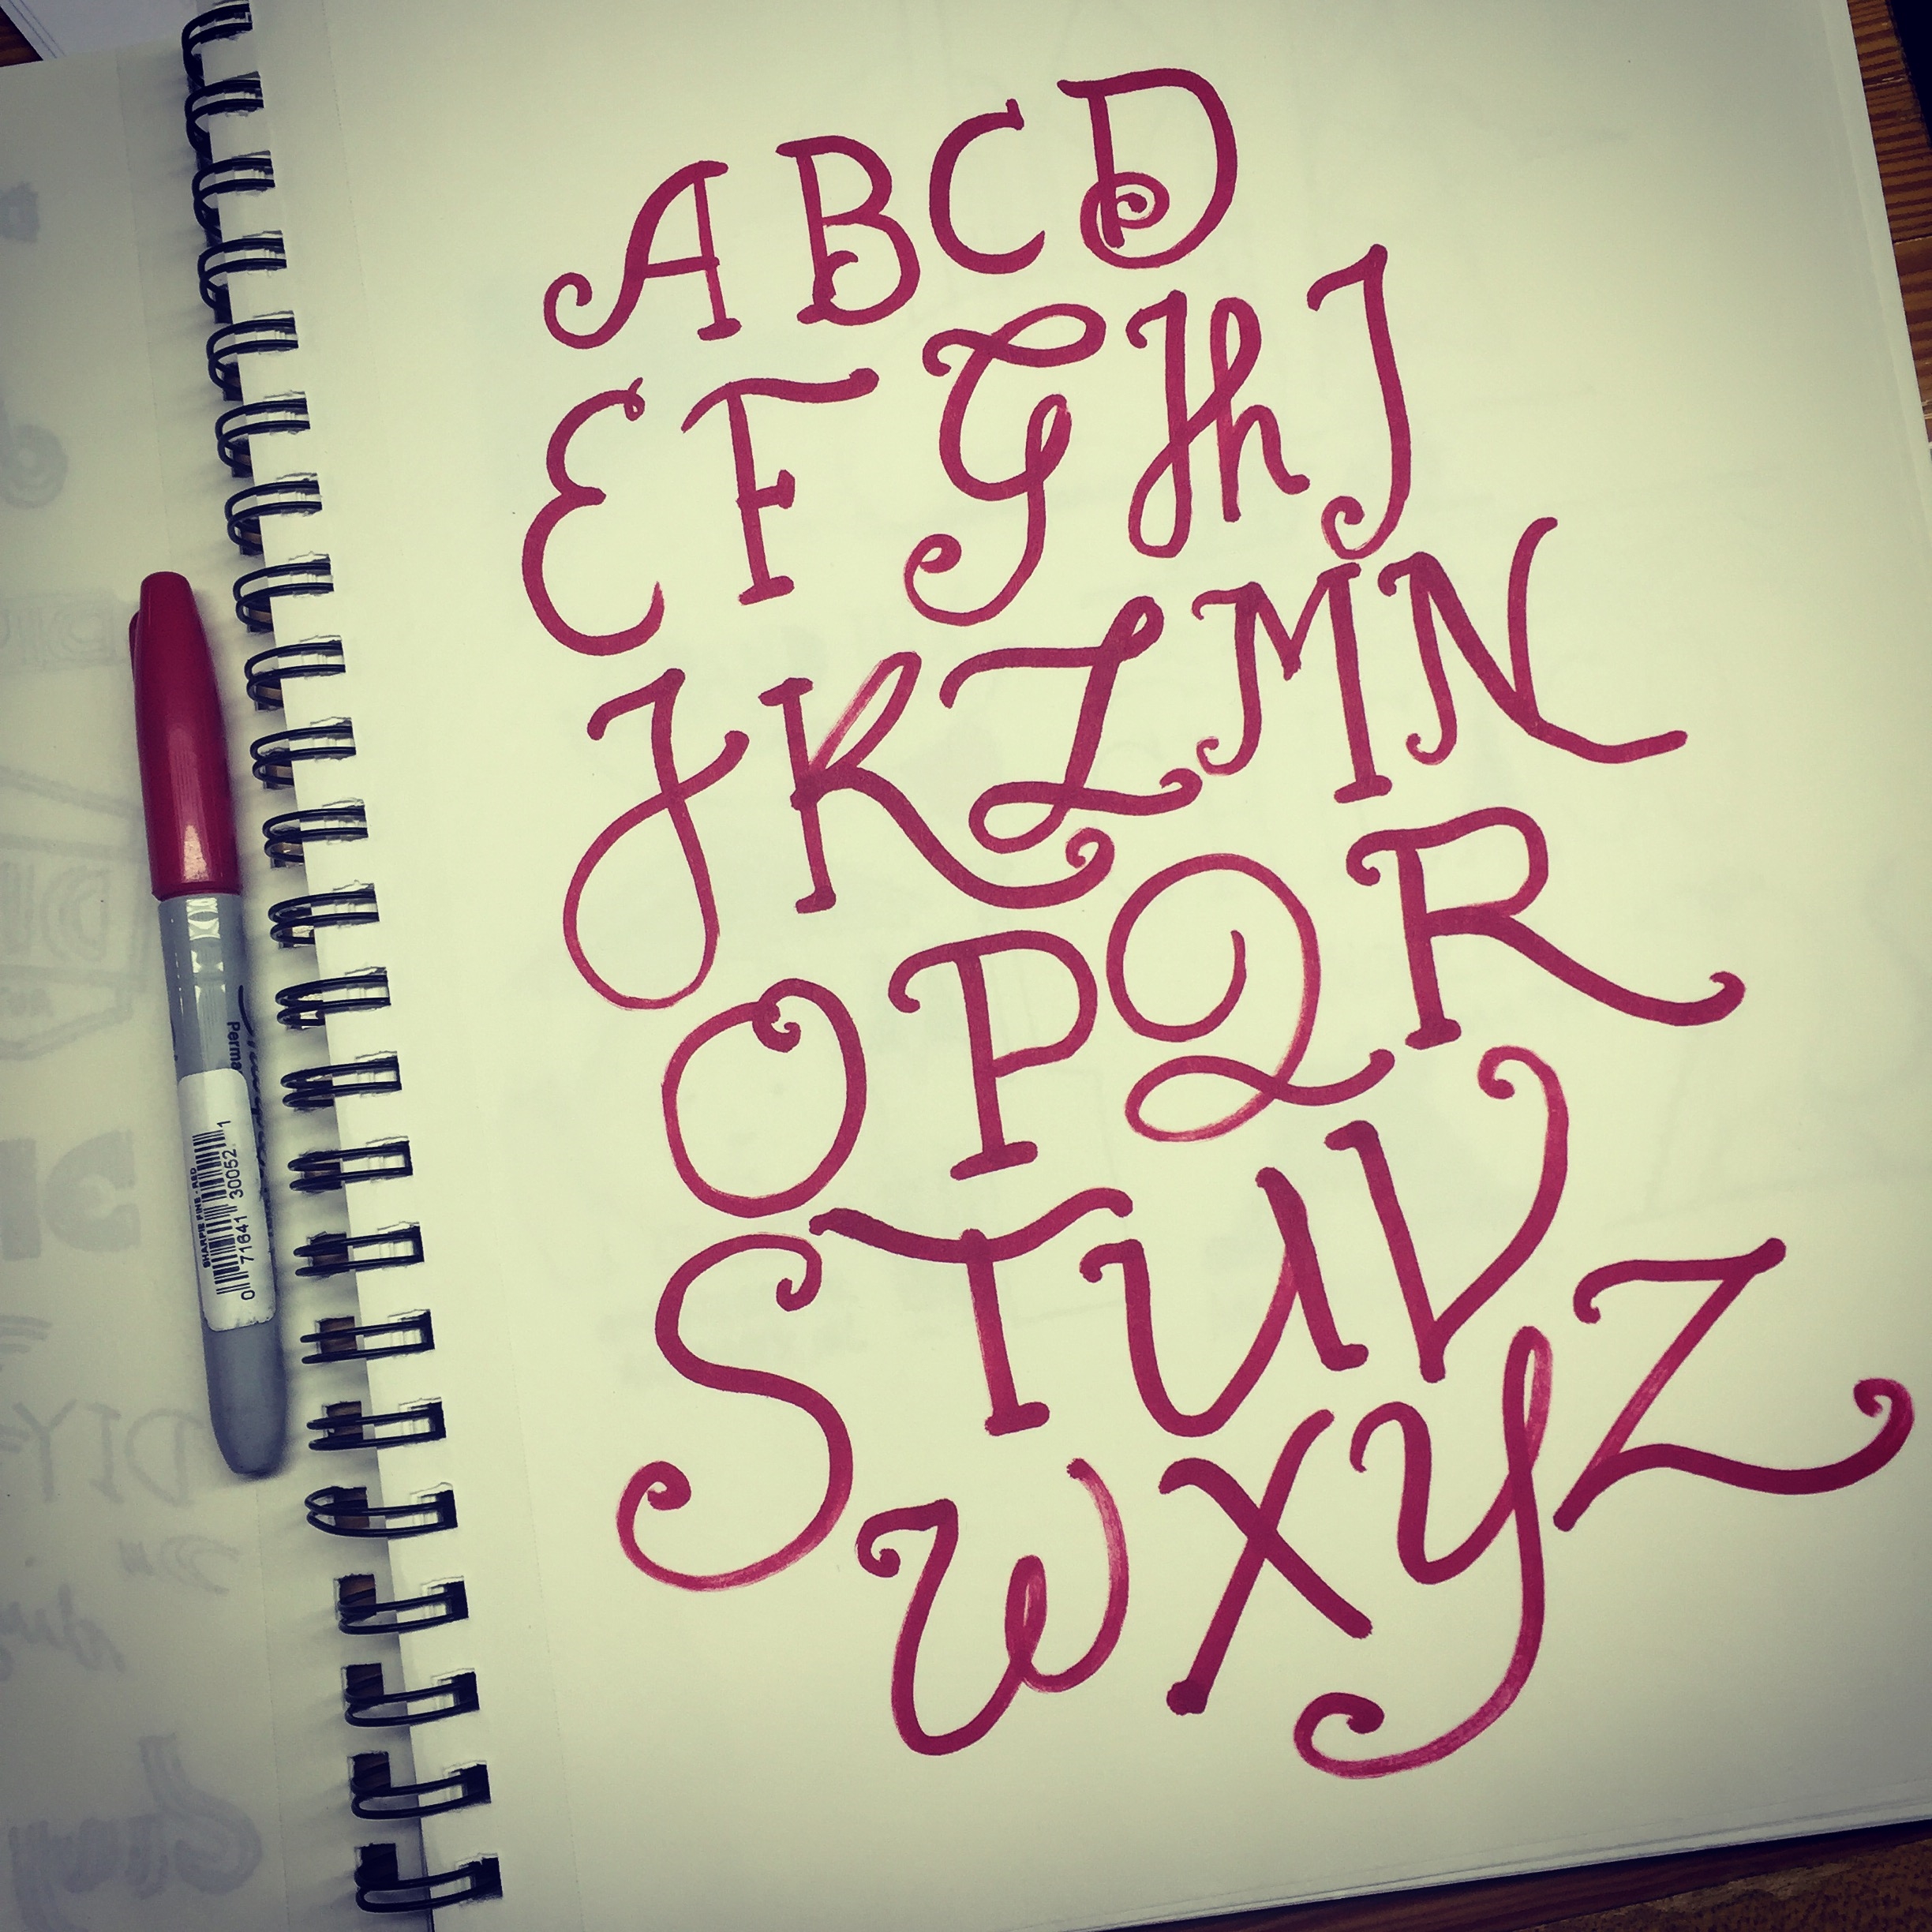 A B C D
E F G H I
J K L M N
O P Q R
S T U V
W X Y Z
Perma
SHARPIE FINE - RED
0 71641 30052 1
DIY